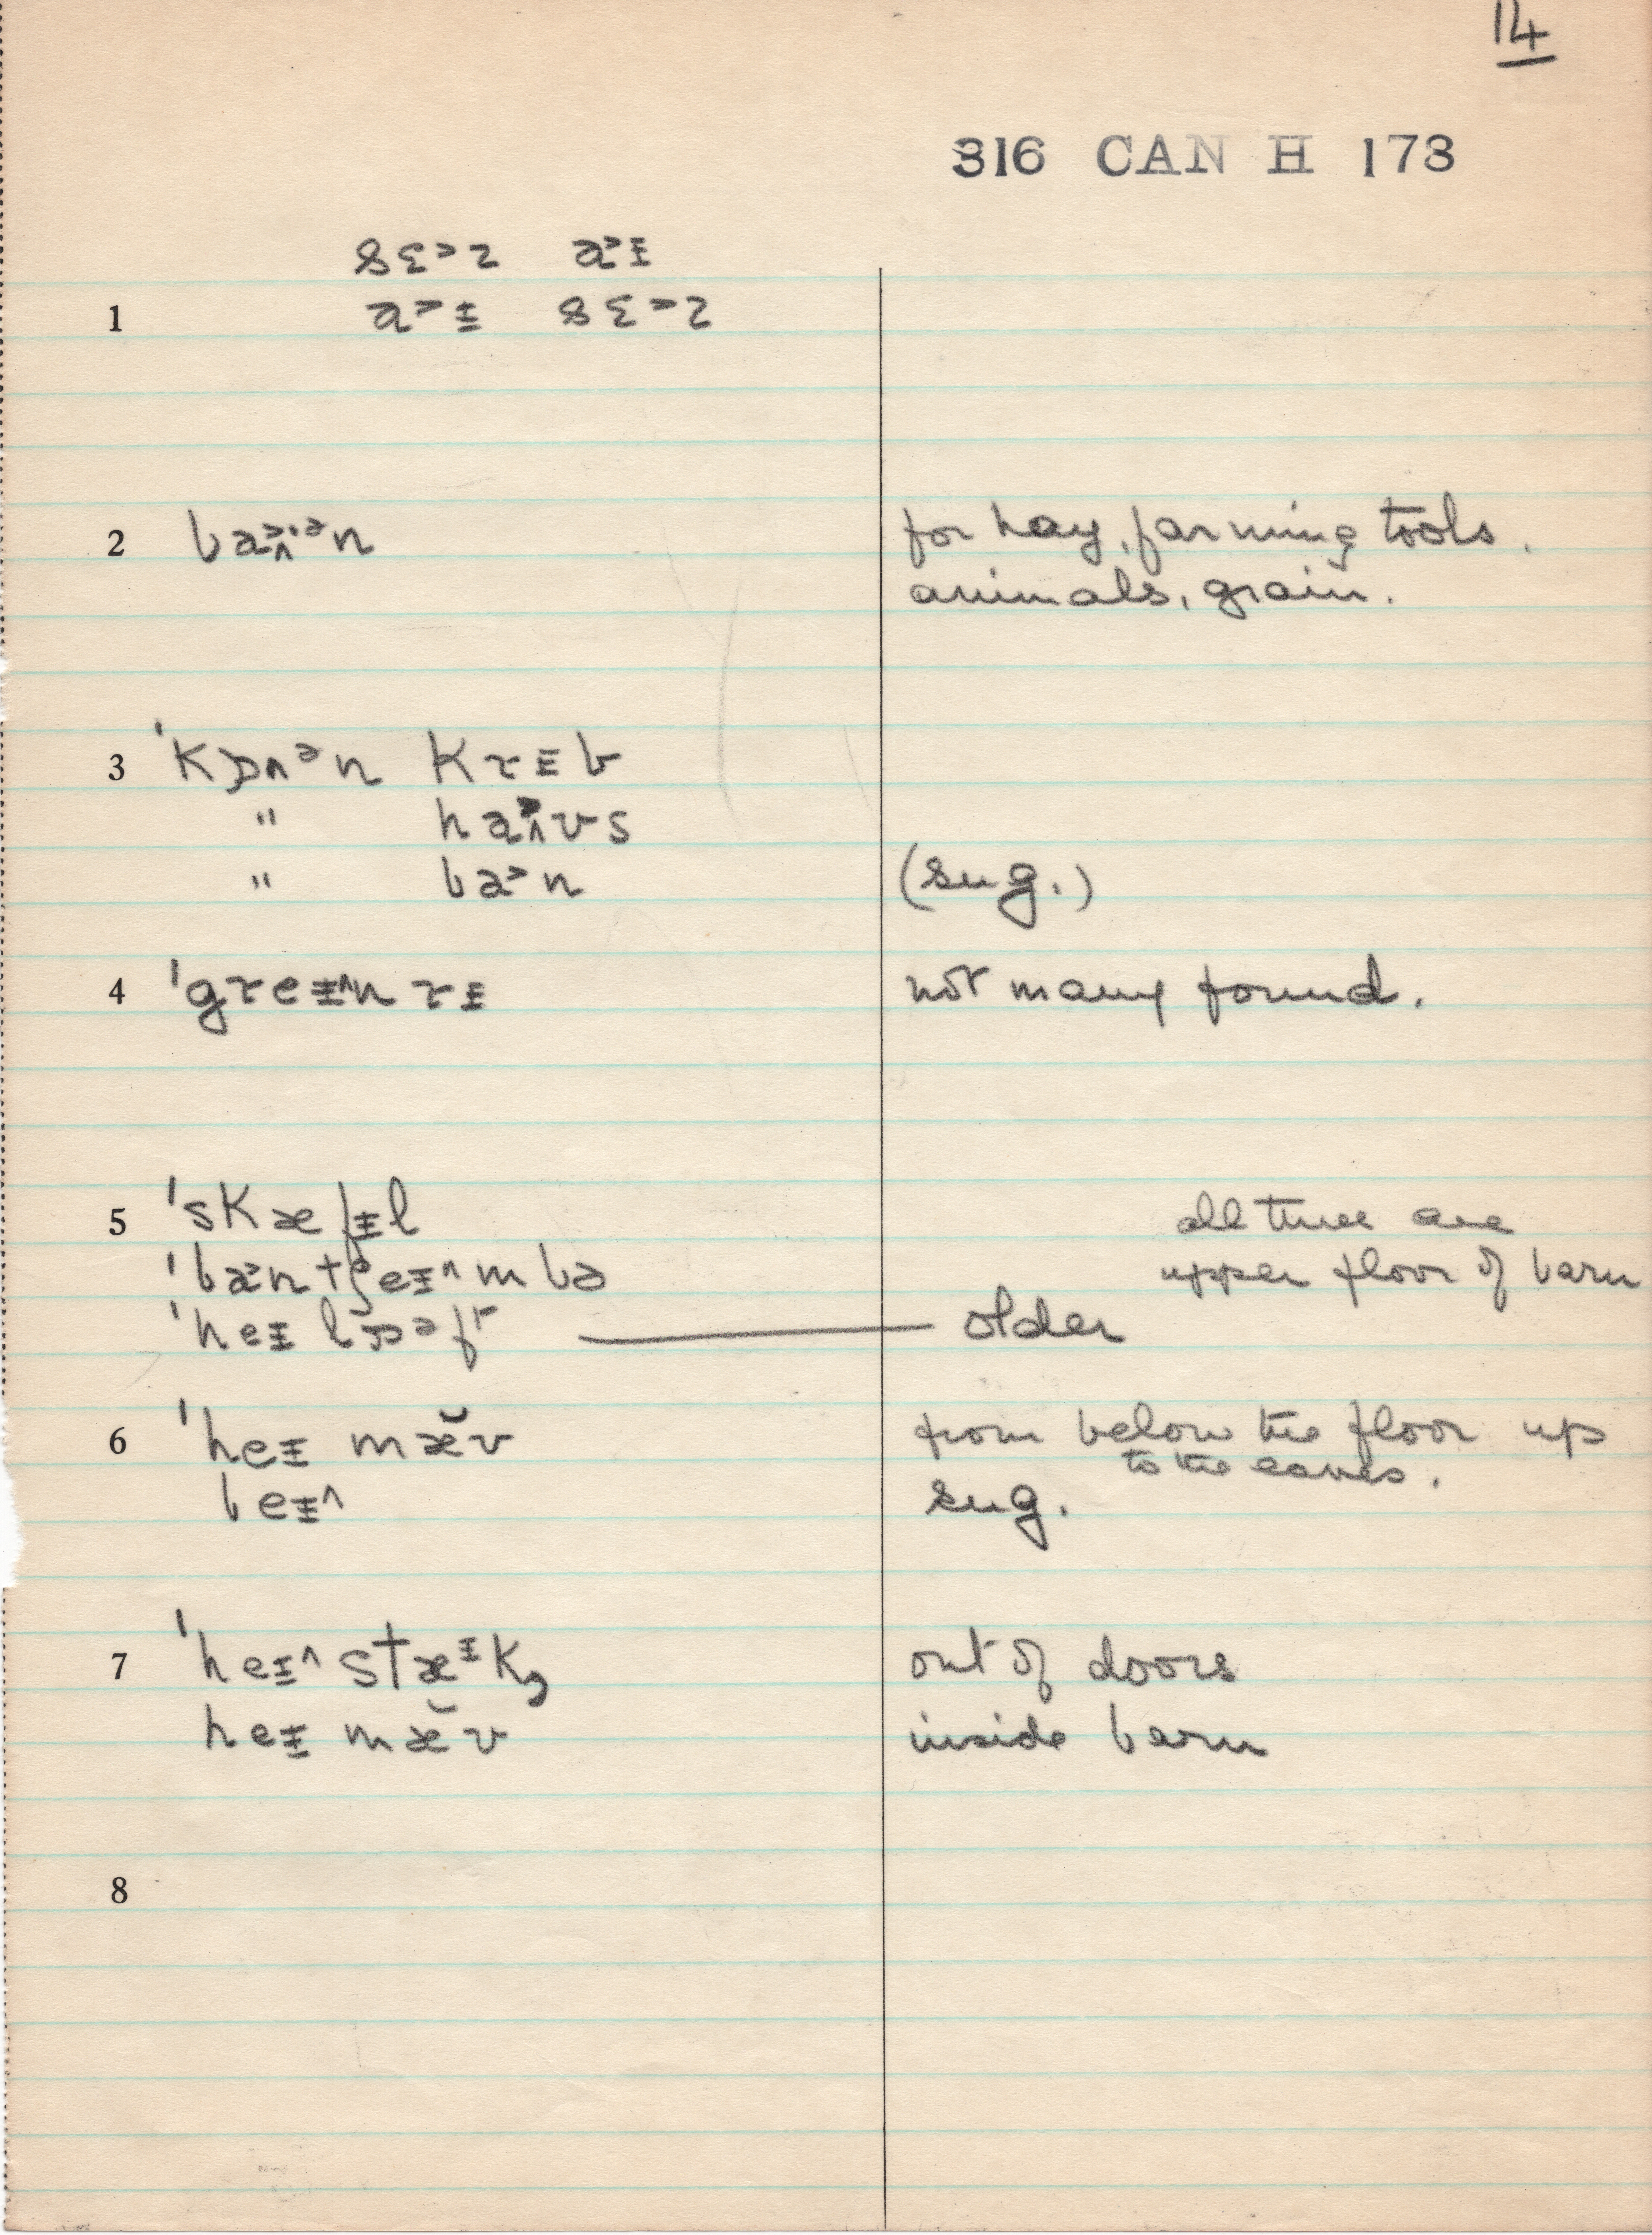 14
316 CAN H 173
8ɛ˃ɿ a˃ɪ
1 a˃ɪ 8ɛ˃ɿ
2 ba˃ʌ·ᵊn for hay, farming tools,
animals, grain.
3 ˈkɒʌᵊn krɪb
" haʌʊs
" ba˃n (sug.)
4 ˈgreɪ^nrɪ not many found.
5 ˈskæfɪl all three are
ˈba˃ntʃeɪ^mbə upper floor of barn
ˈheɪ lɒᵊft older
6 ˈheɪ mæ̆ʊ from below the floor up
to the eaves.
beɪ^ sug.
7 ˈheɪ^ stæᶦk, out of doors
heɪ mæ̆ʊ inside barn
8